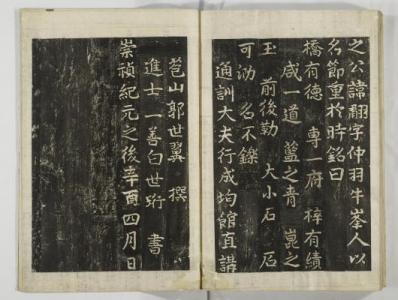 之公諱翻字仲羽牛峯人以
名節重於時銘曰
橋有德 專一府 梓有績
咸一道 藍之青 崑之
玉 前後勒 大小石 石
可泐 名不鑠
通訓大夫行成均館直講
苞山郭世翼 撰
進士一善白世珩 書
崇禎紀元之後辛酉四月日